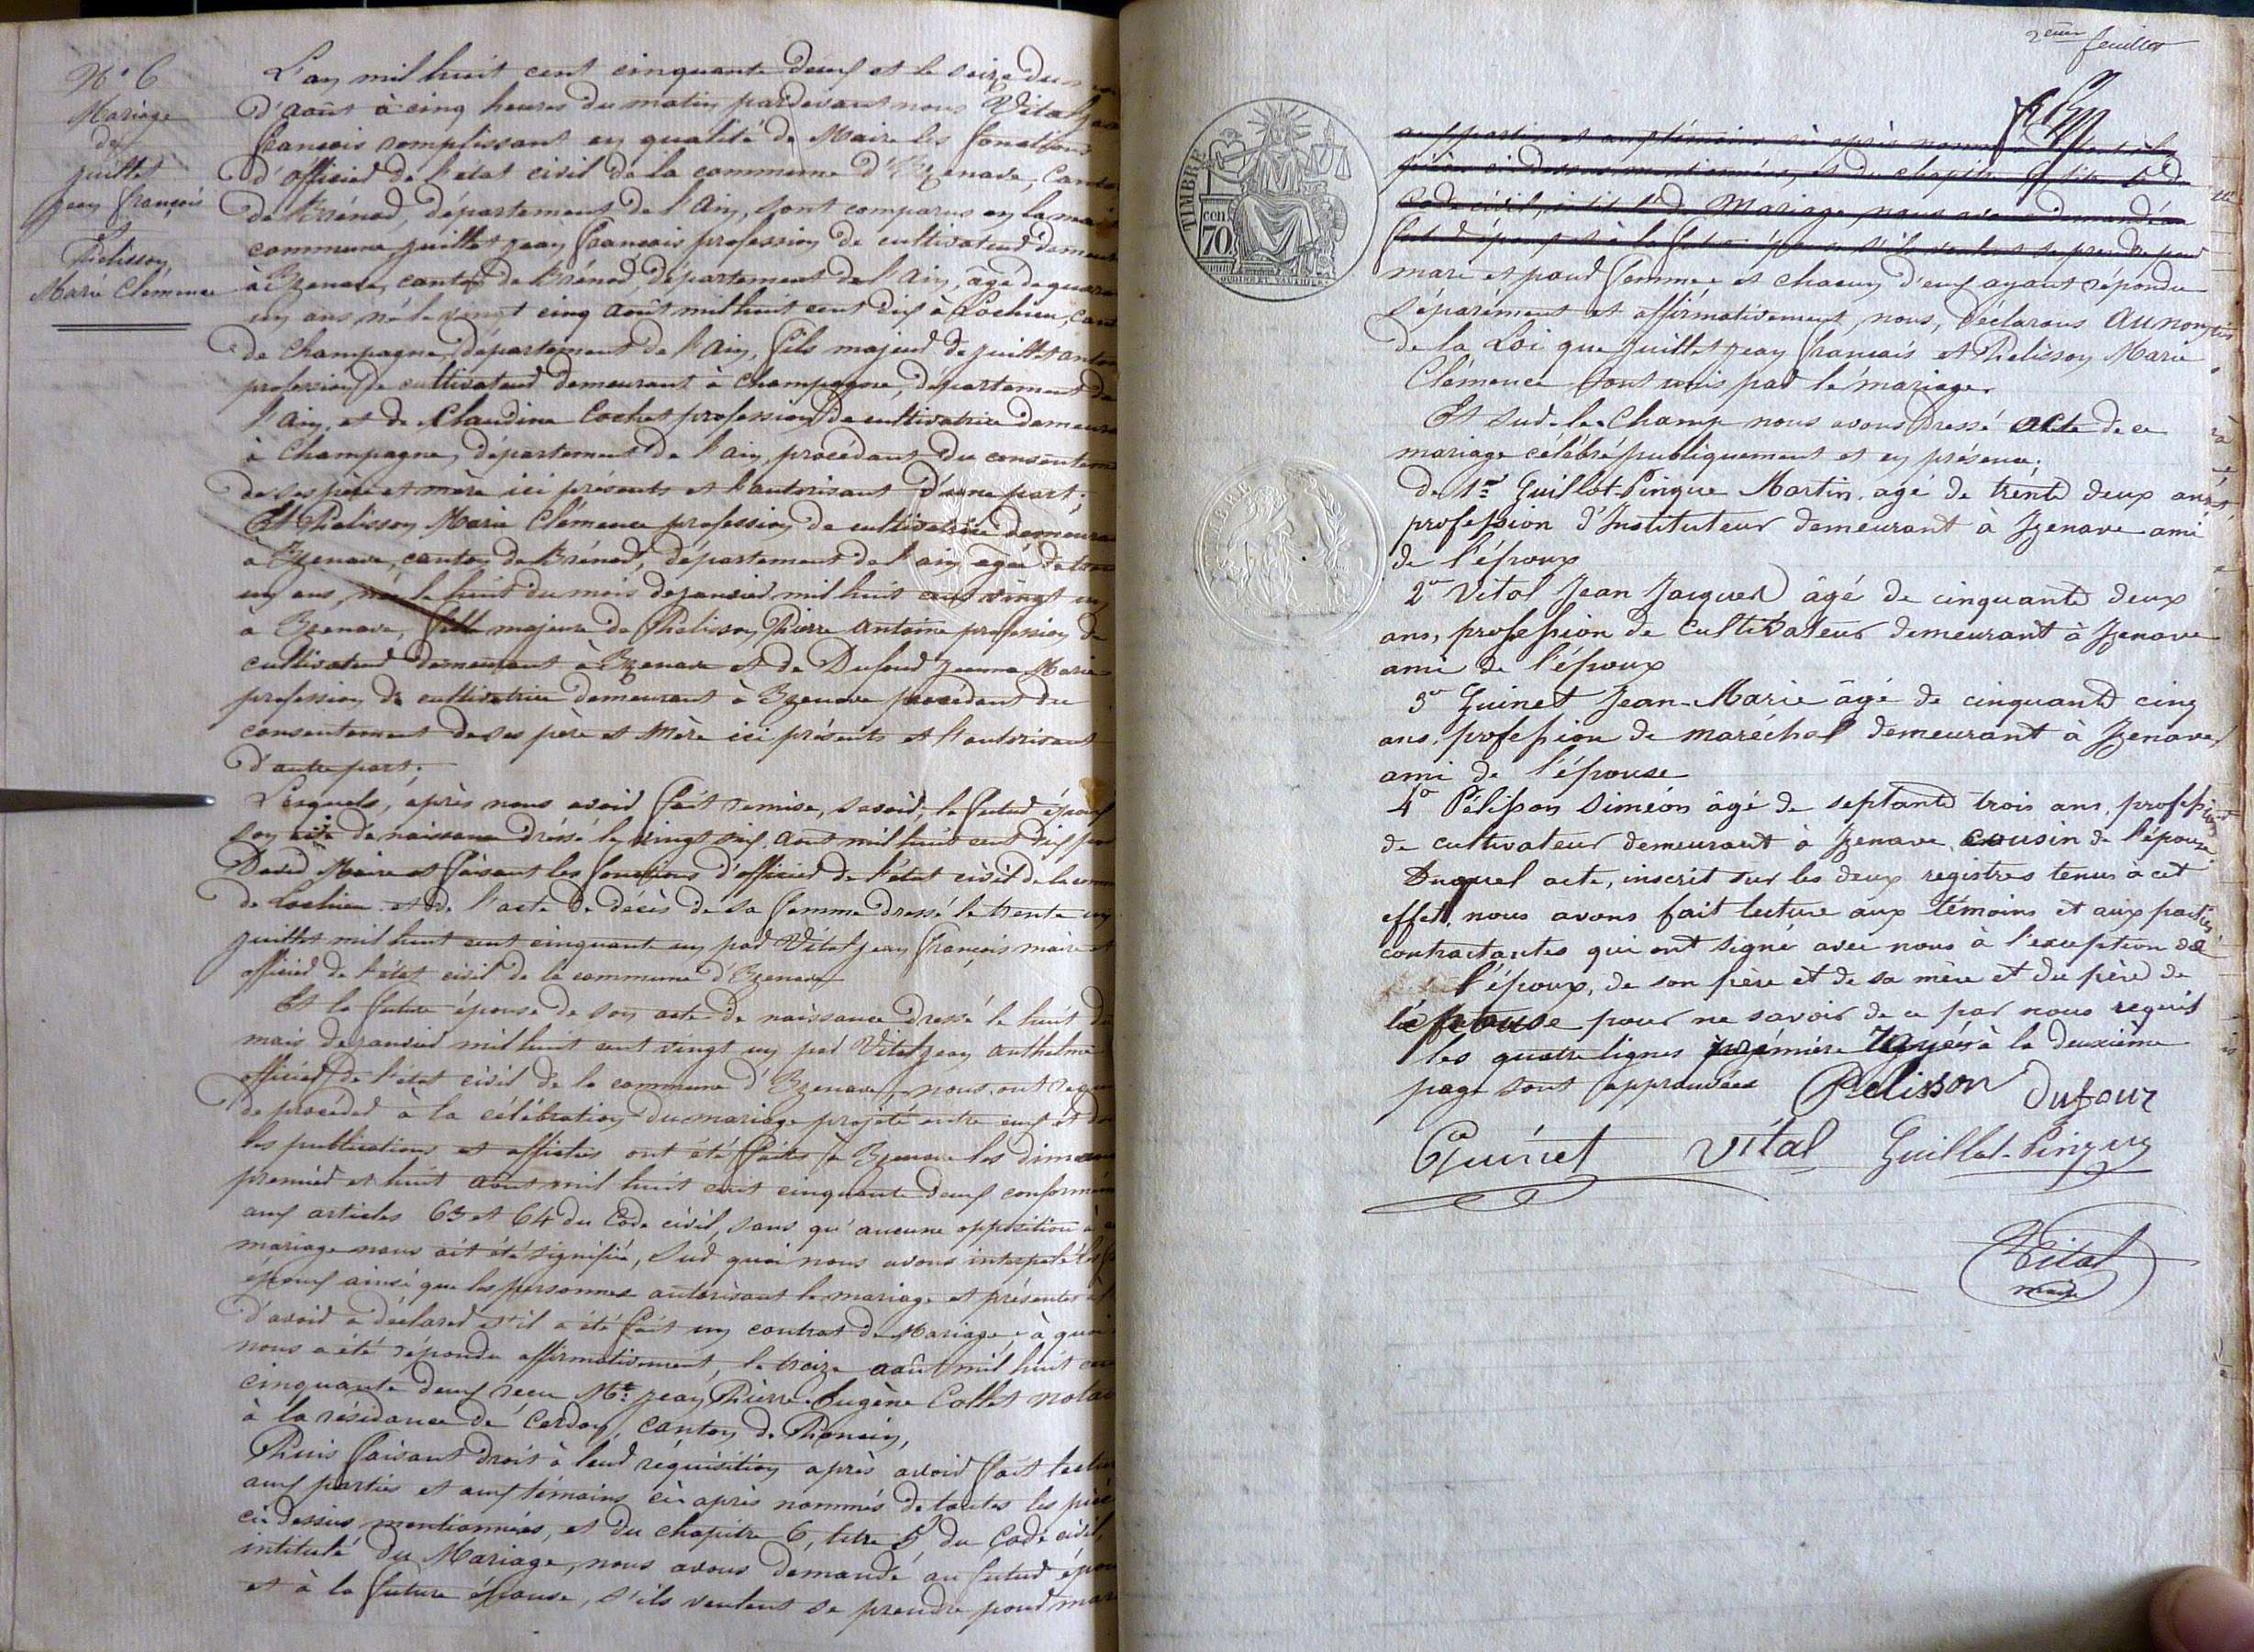 N° 6
Mariage
de
Juillet
Jean François
et
Pelisson
Marie Clémence
L'an mil huit cent cinquante deux et le seize du
d'août à cinq heures du matin pardevant nous Vital Jean
François remplissant en qualité de Maire les fonctions
d'officier de l'état civil de la commune d'Izenave, Canton
de Brénod, département de l'Ain, sont comparus en la
commune Juillet Jean François profession de cultivateur
à Izenave, canton de Brénod, département de l'Ain, âgé de
un ans né le vingt cinq août mil huit cent dix à Lochieu,
de Champagne, département de l'Ain, fils majeur de Juillet
profession de cultivateur demeurant à Champagne, département de
l'Ain, et de Claudine Cochet profession de cultivatrice
à Champagne, département de l'Ain, procédant du
de ses père et mère ici présents et l'autorisant d'une part;
Et Pelisson Marie Clémence profession de cultivatrice
à Izenave, canton de Brénod, département de l'Ain âgée de
un ans, née le huit du mois de janvier mil huit cent vingt un
à Izenave, fille majeure de Pelisson Pierre Antoine profession de
cultivateur demeurant à Izenave et de Dufour Jeanne Marie
profession de cultivatrice demeurant à Izenave procédant du
consentement de ses père et Mère ici présents et l'autorisant
d'autre part;
Lesquels, après nous avoir fait remise, savoir; le futur époux
son acte de naissance dressé le vingt six août mil huit cent dix par
David Maire et faisant les fonctions d'officier de l'état civil de la
de Lochieu et de l'acte de décès de sa femme dressé le trente un
juillet mil huit cent cinquante un par Vital Jean François maire et
officier de l'état civil de la commune d'Izenave
Et la future épouse de son acte de naissance dressé le huit du
mois de janvier mil huit cent vingt un par Vital Jean Anthelme
officier de l'état civil de la commune d'Izenave, nous ont
de procéder à la célébration du mariage projeté entre eux et
les publications et affiches ont été faites à Izenave les
premier et huit août mil huit cent cinquante deux
aux articles 63 et 64 du Code civil, sans qu'aucune opposition à
mariage nous ait été signifiée, Sur quoi nous avons interpelé les
époux ainsi que les personnes autorisant le mariage et présentes
d'avoir à déclarer s'il a été fait un contrat de Mariage; à quoi
nous a été répondu affirmativement, le treize août mil huit
cinquante deux reçu Me Jean Pierre Eugène Collet
à la résidance de Cerdon, canton de Poncin,
Puis faisant droit à leur réquisition après avoir fait
aux parties et aux témoins ci-après nommés de toutes les
ci-dessus mentionnées, et du chapitre 6, titre 5 du Code civil,
intitulé du Mariage, nous avons demandé au futur
et à la future épouse, s'ils veulent se prendre pour
2ème feuillet
TIMBRE
70 cen
aux parties et aux témoins ci après nommés
pièces ci-dessus mentionnées, et du chapitre 6 titre 5 du
Code civil, intitulé du Mariage, nous avons demandé au
futur époux et à la future épouse s'ils veulent se prendre pour
mari et pour femme; et chacun d'eux ayant répondu
séparément et affirmativement, nous, déclarons au nom
de la Loi que Juillet Jean François et Pelisson Marie
Clémence sont unis par le mariage.
Et sur-le-champ nous avons dressé acte de ce
mariage célébré publiquement et en présence;
de 1° Guillot-Pingue Martin, agé de trente deux ans
profession d'Instituteur demeurant à Izenave ami
de l'époux
2° Vital Jean Jacques âgé de cinquante deux
ans, profession de cultivateur demeurant à Izenave
ami de l'époux
3° Guinet Jean-Marie âgé de cinquante cinq
ans, profession de maréchal demeurant à Izenave
ami de l'épouse
4° Pélisson Siméon âgé de septante trois ans, profession
de cultivateur demeurant à Izenave, cousin de l'épouse
Duquel acte, inscrit sur les deux registres tenus à cet
effet, nous avons fait lecture aux témoins et aux parties
contractantes qui ont signé avec nous à l'exception de
l'époux, de son père et de sa mère et du père de
l'épouse pour ne savoir de ce par nous requis
les quatre lignes première rayées à la deuxième
page sont approuvées Pelisson Dufour
Guinet Vital Guillot-Pingue
Vital
maire